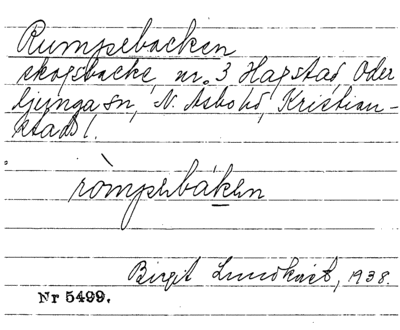 Rumpebacken
skogsbacke, nr. 3 Hagstad, Oder
ljunga sn, N. Åsbo hd, Kristian-
stads l.
ròmpebáken
Birgit Lundkvist, 1938.
Nr 5499.